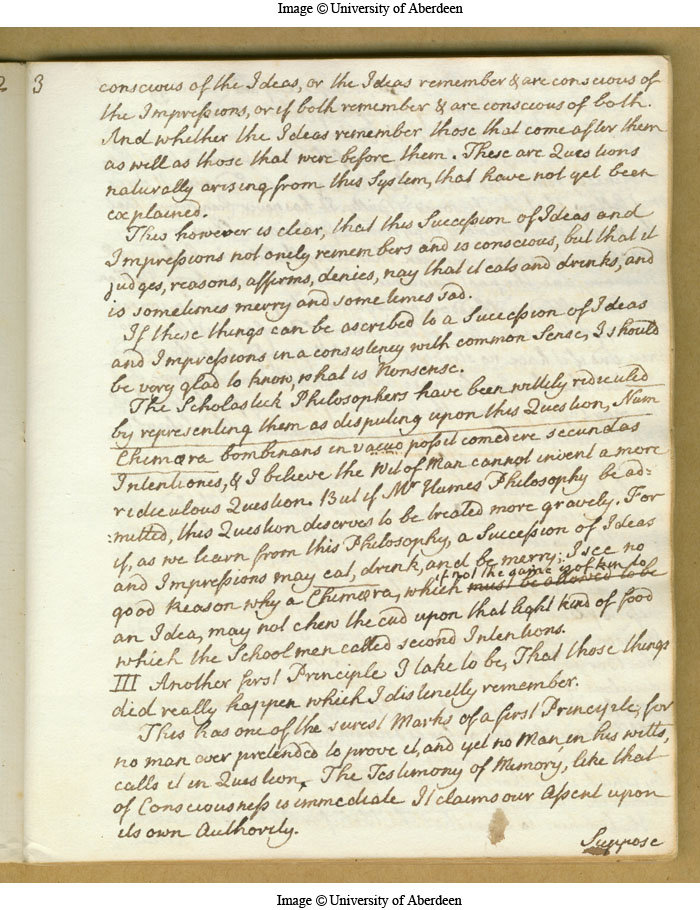 Image © University of Aberdeen
2
3
conscious of the Ideas, or the Ideas remember & are conscious of
the Impressions, or if both remember & are conscious of both.
And whether the Ideas remember those that come after them
as well as those that were before them. These are Questions
naturally arising from this System, that have not yet been
explained.
This however is clear, that this Succession of Ideas and
Impressions not onely remembers and is conscious, but that it
judges, reasons, affirms, denies, nay that it eats and drinks, and
is sometimes merry and sometimes sad.
If these things can be ascribed to a Succession of Ideas
and Impressions in a consistency with common Sense, I should
be very glad to know, what is Nonsense.
The Scholastick Philosophers have been wittily ridiculed
by representing them as disputing upon this Question, Num
Chimæra bombinans in vacuo possit comedere secundas
Intentiones, & I believe the Wit of Man cannot invent a more
ridiculous Question. But if Mr Humes Philosophy be ad=
:mitted, this Question deserves to be treated more gravely. For
if, as we learn from this Philosophy, a Succession of Ideas
and Impressions may eat, drink, and be merry; I see no
good Reason why a Chimæra, which must be allowed to be
if not the same is of kin to
an Idea, may not chew the cud upon that light kind of food
which the Schoolmen called second Intentions.
III Another first Principle I take to be, That those things
did really happen which I distinctly remember.
This has one of the surest Marks of a first Principle, for
no man ever pretended to prove it, and yet no Man, in his witts,
calls it in Question. The Testimony of Memory, like that
of Consciousness is immediate It claims our Assent upon
its own Authority.
Suppose
Image © University of Aberdeen